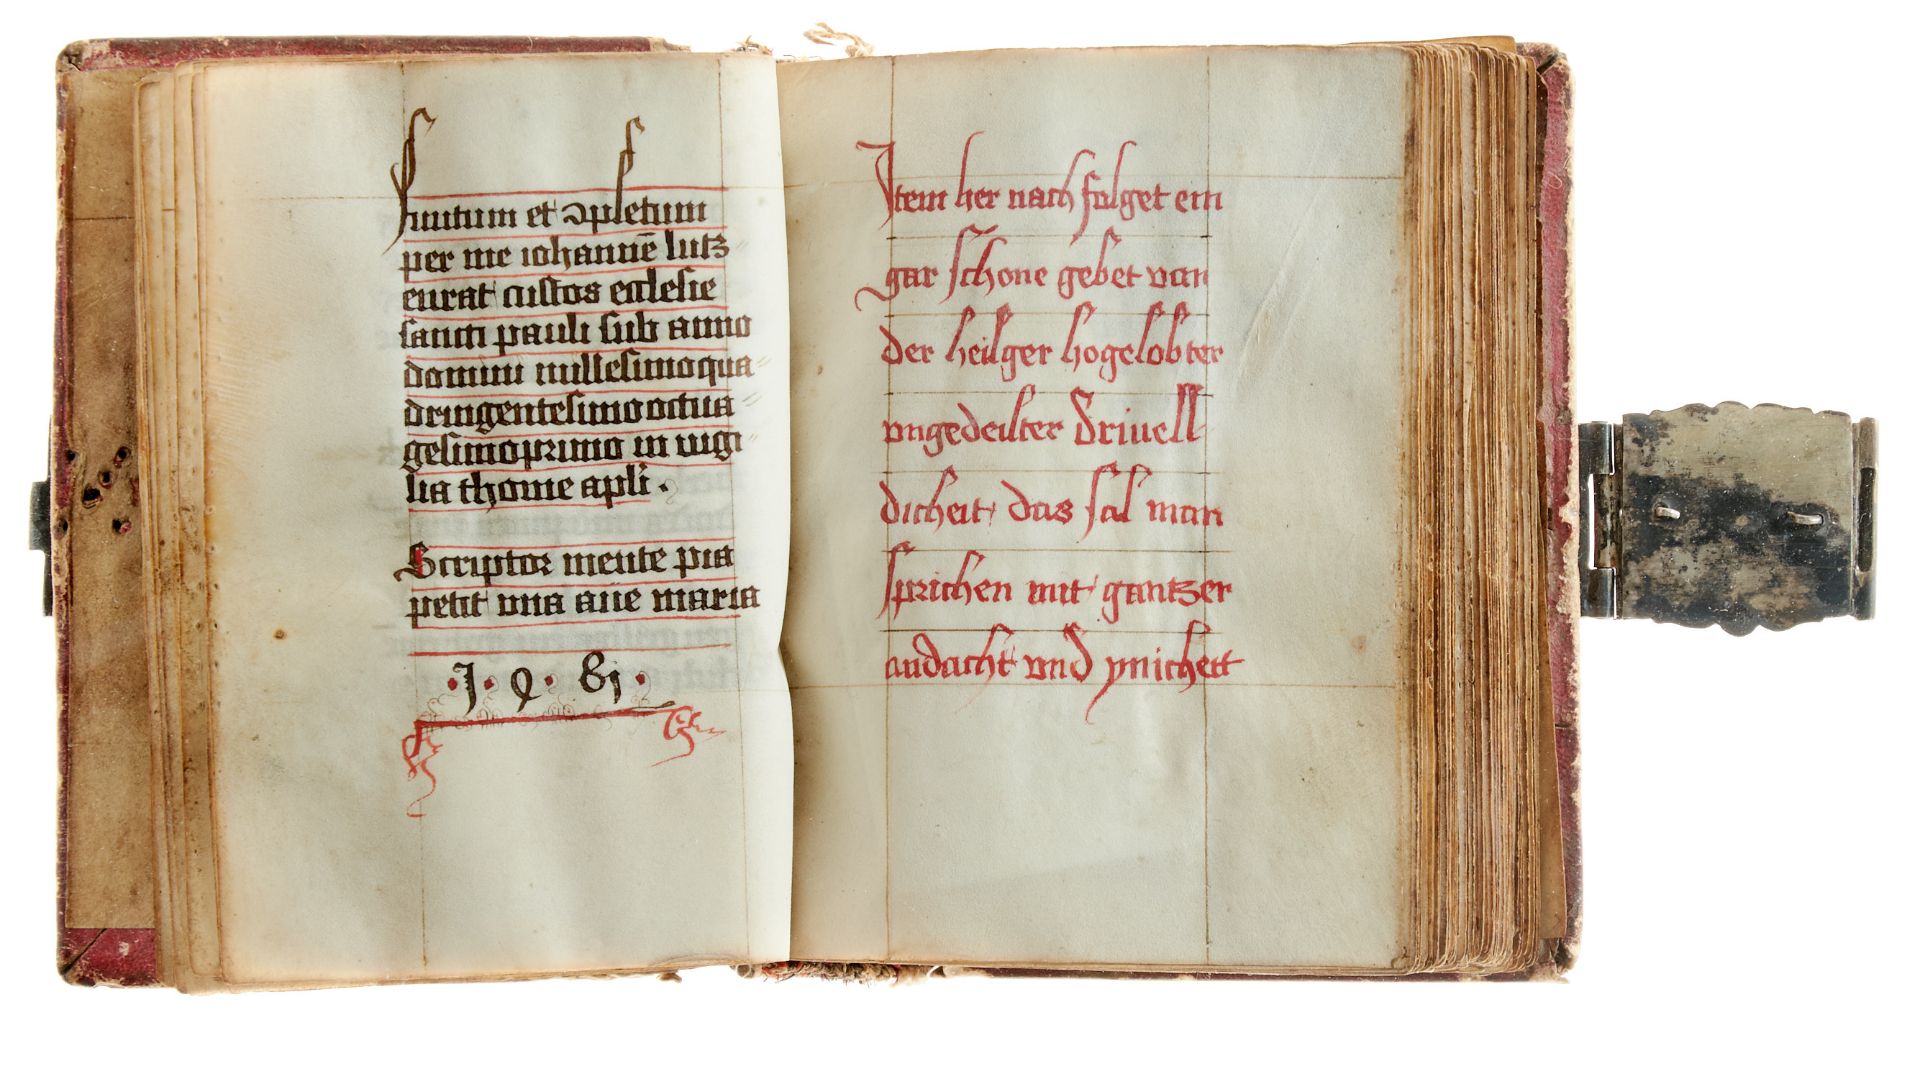 Finitum et ꝯpletum
per me iohannē lutz
curat custos ecclesie
sancti pauli sub anno
domini millesimoqua
dringentesimooctua
gesimoprimo in uigi
lia thome apli .
Scriptor mente pia
petit vna aue maria
.1.4.81.
Item her nach folget ein
gar schone gebet van
der heilger hogelobter
vngedeilter Driuell
dicheit das sal man
sprichen mit gantzer
andacht vnd ynicheit